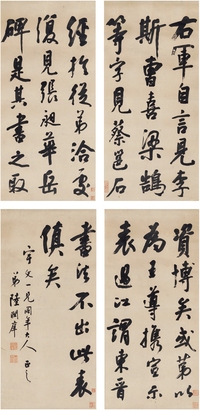 右軍自言見李
斯曹喜梁鵠
等字見蔡邕石
經於從弟洽處
復見張昶華岳
碑是其書之取
資博矣或第以
為王導攜宣示
表過江謂東晉
書法不出此表
僨矣
宇文一兄同年大人正之
弟陸潤庠